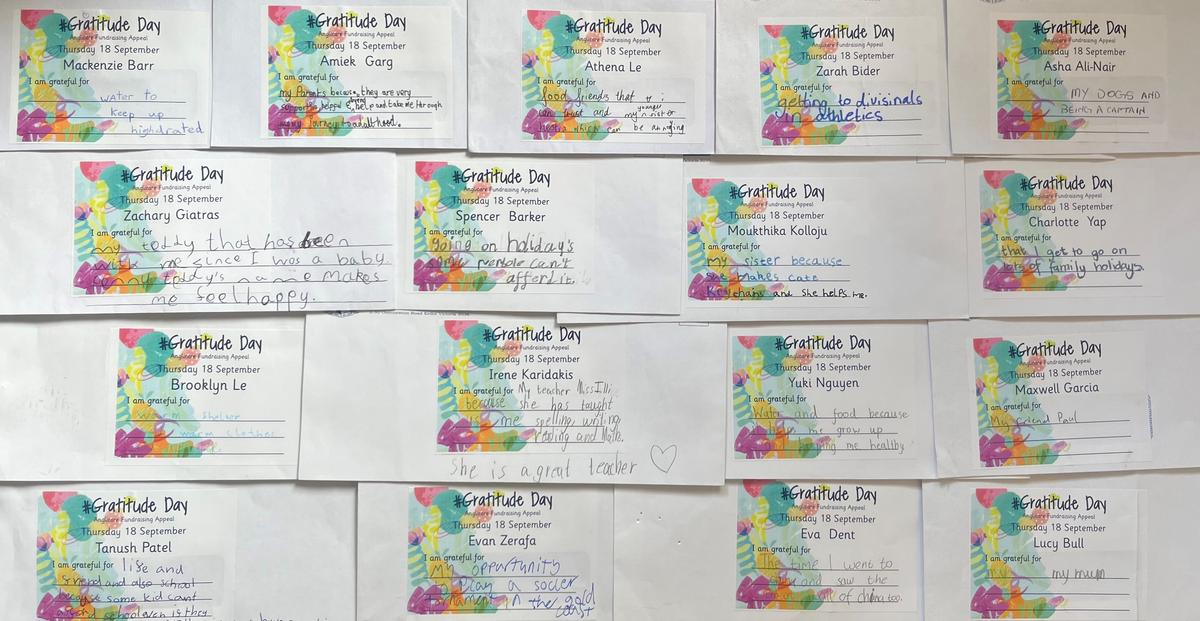 #Gratitude Day
Anglicare Fundraising Appeal
Thursday 18 September
Mackenzie Barr
I am grateful for
water to
keep up
highdrated
#Gratitude Day
Anglicare Fundraising Appeal
Thursday 18 September
Amiek Garg
I am grateful for
my Parents because, they are very
help and take me through
my Jurney to adulthood.
#Gratitude Day
Anglicare Fundraising Appeal
Thursday 18 September
Athena Le
I am grateful for
good friends that i
can trust and my younger
which can be annoying
#Gratitude Day
Anglicare Fundraising Appeal
Thursday 18 September
Zarah Bider
I am grateful for
getting to divisinals
in athletics
#Gratitude Day
Anglicare Fundraising Appeal
Thursday 18 September
Asha Ali-Nair
I am grateful for
MY DOGS AND
BEING A CAPTAIN
#Gratitude Day
Anglicare Fundraising Appeal
Thursday 18 September
Zachary Giatras
I am grateful for
my teddy that has been
with me since I was a baby
my teddy's name makes
me feel happy.
#Gratitude Day
Anglicare Fundraising Appeal
Thursday 18 September
Spencer Barker
I am grateful for
going on holiday's
some people can't
afford it.
#Gratitude Day
Anglicare Fundraising Appeal
Thursday 18 September
Moukthika Kolloju
I am grateful for
my sister because
she makes cute
Keychains and she helps me.
#Gratitude Day
Anglicare Fundraising Appeal
Thursday 18 September
Charlotte Yap
I am grateful for
that I get to go on
lots of family holidays.
#Gratitude Day
Anglicare Fundraising Appeal
Thursday 18 September
Brooklyn Le
I am grateful for
warm shelter
warm clothes
#Gratitude Day
Anglicare Fundraising Appeal
Thursday 18 September
Irene Karidakis
I am grateful for My teacher Miss
because she has taught
me spelling, writing,
reading and Maths.
She is a great teacher
#Gratitude Day
Anglicare Fundraising Appeal
Thursday 18 September
Yuki Nguyen
I am grateful for
Water and food because
me grow up
me healthy
#Gratitude Day
Anglicare Fundraising Appeal
Thursday 18 September
Maxwell Garcia
I am grateful for
My friend Paul
#Gratitude Day
Anglicare Fundraising Appeal
Thursday 18 September
Tanush Patel
I am grateful for life and
friend and also school
because some kid cant
#Gratitude Day
Anglicare Fundraising Appeal
Thursday 18 September
Evan Zerafa
I am grateful for
My opportunity
Play a socler
in the gold
coast
#Gratitude Day
Anglicare Fundraising Appeal
Thursday 18 September
Eva Dent
I am grateful for
The time I went to
and saw the
of china too.
#Gratitude Day
Anglicare Fundraising Appeal
Thursday 18 September
Lucy Bull
I am grateful for
my mum